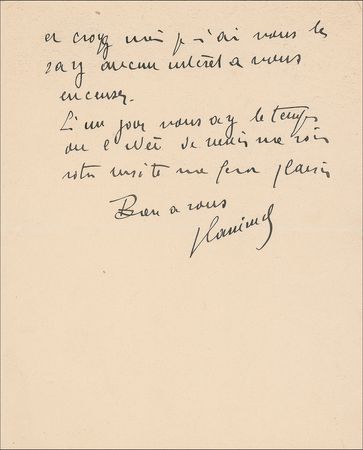 et croyez moi je n'ai vous le
savez aucun intéret a vous
encenser.
Si un jour vous avez le temps
ou l'idée de venir me voir
votre visite me fera plaisir
Bien a vous
Vlaminck